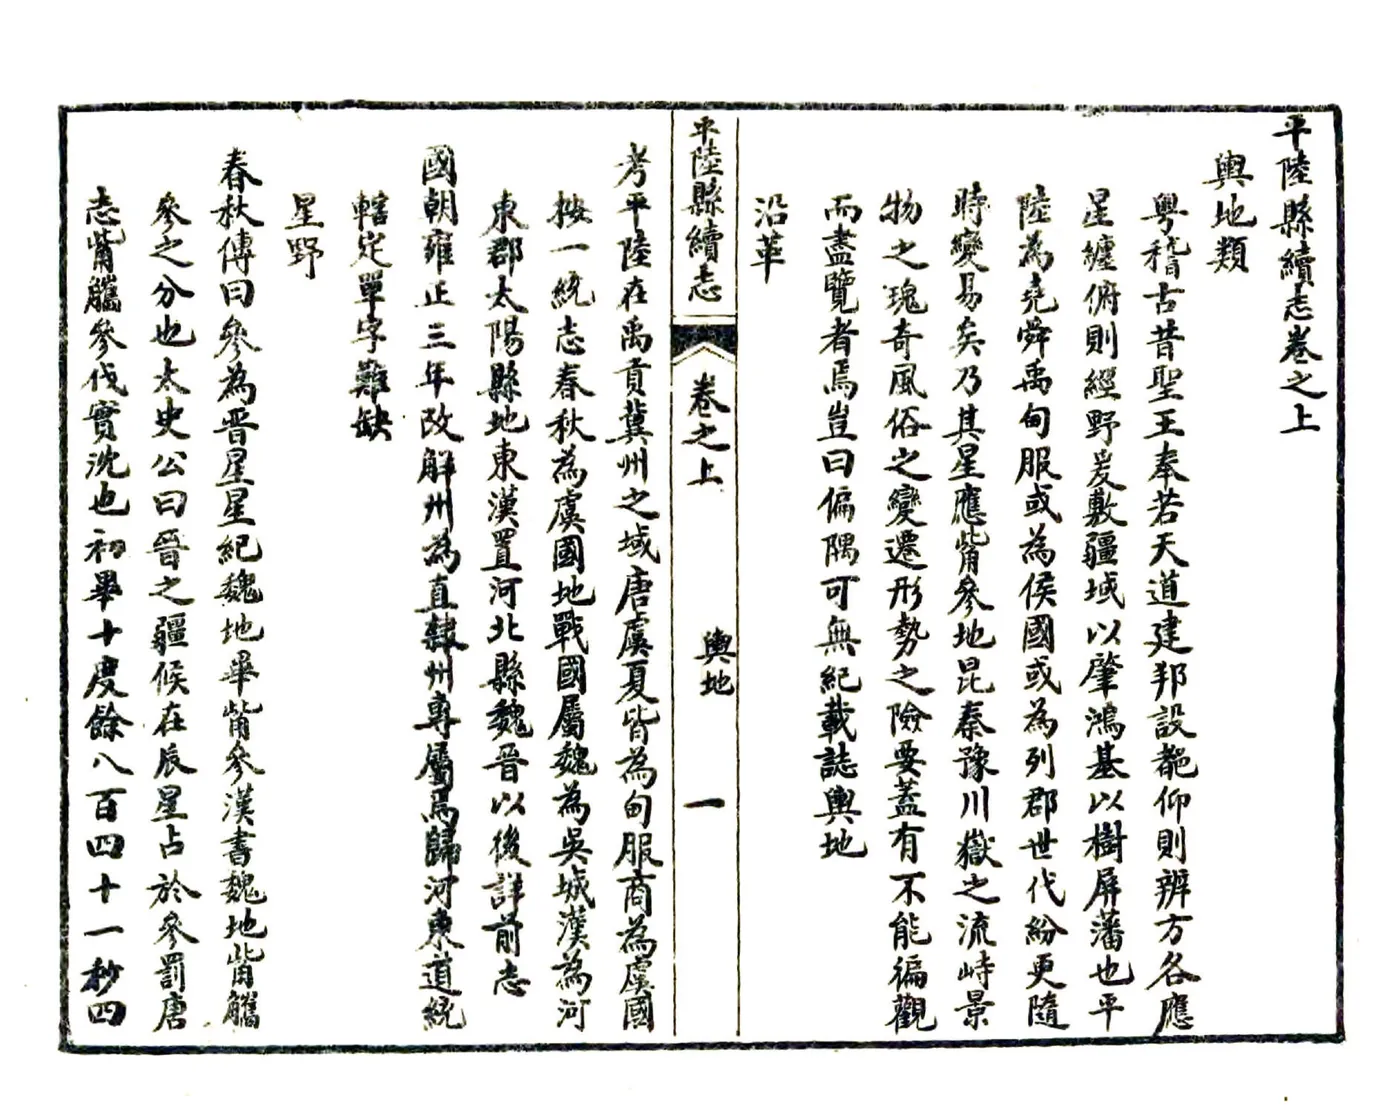 平陸縣續志卷之上
輿地類
粵稽古昔聖王奉若天道建邦設都仰則辨方各應
星纏俯則經野爰敷疆域以肇鴻基以樹屏藩也平
陸為堯舜禹甸服或為侯國或為列郡世代紛更隨
時變易矣乃其星應觜參地昆秦豫川嶽之流峙景
物之瑰奇風俗之變遷形勢之險要蓋有不能徧觀
而盡覽者焉豈曰偏隅可無紀載誌輿地
沿革
平陸縣續志 卷之上 輿地 一
考平陸在禹貢冀州之域唐虞夏皆為甸服商為虞國
按一統志春秋為虞國地戰國屬魏為吳城漢為河
東郡太陽縣地東漢置河北縣魏晉以後詳前志
國朝雍正三年改解州為直隸州專屬焉歸河東道統
轄定單字難缺
星野
春秋傳曰參為晉星星紀魏地畢觜參漢書魏地觜觿
參之分也太史公曰晉之疆候在辰星占於參罰唐
志觜觿參伐實沈也初畢十度餘八百四十一秒四